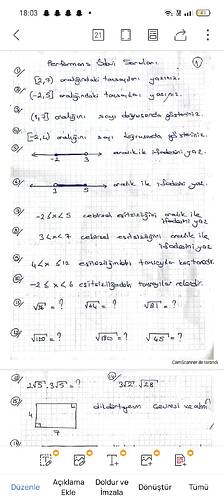 18:03
21
Performans Ödevi Soruları
1
1) [2,7) aralığındaki tamsayıları yazınız.
2) (-2,5] aralığındaki tamsayıları yazınız.
aralığını sayı doğrusunda gösteriniz.
[-2,4) aralığını sayı doğrusunda gösteriniz.
-2 3 aralık ile ifadesini yaz.
1 5 aralık ile ifadesini yaz.
-2<x≤5 cebirsel eşitsizliğini aralık ile
ifadesini yaz
3<x<7 cebirsel eşitsizliğini aralık ile
ifadesini yaz
4<x≤12 eşitsizliğindeki tamsayılar kaçtanedir.
-2≤x<6 eşitsizliğindeki tamsayılar nelerdir.
= ? √64 = ? √81 = ?
= ? = ? √45 = ?
CamScanner ile tarandı
2√5 . 3√5 = ? 3√2 . √28
4 dikdörtgenin çevresi ve alanı
7
Düzenle
Açıklama
Ekle
Doldur ve
İmzala
Dönüştür
Tümü